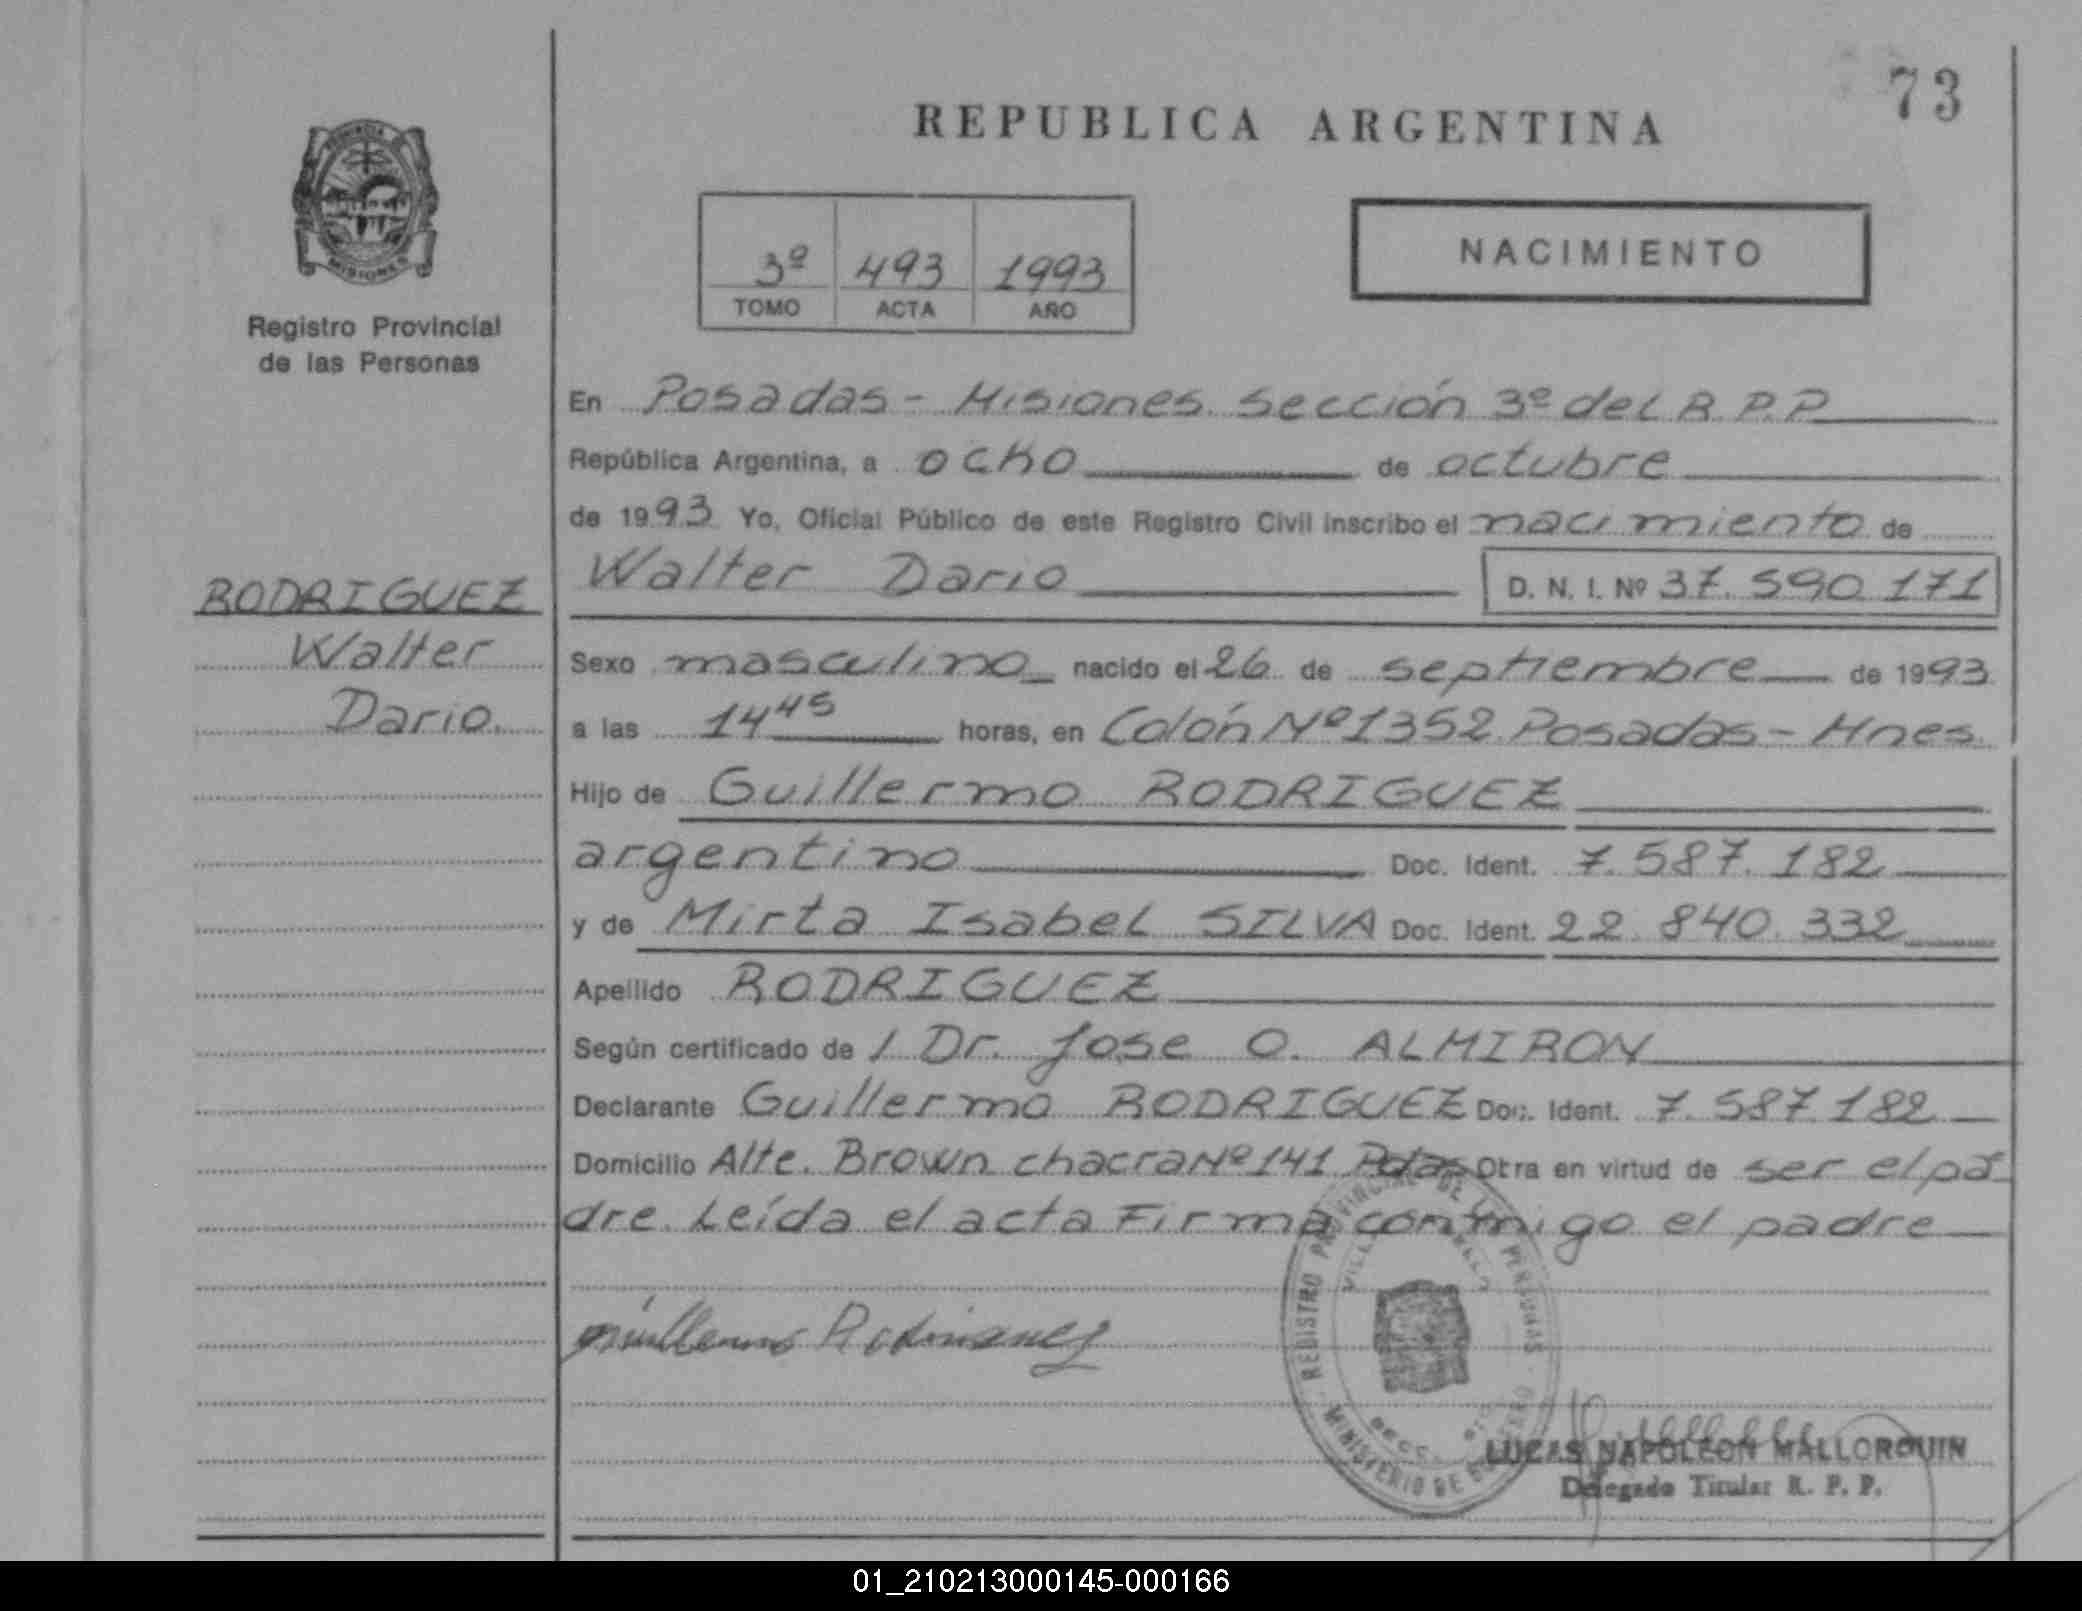 73
REPUBLICA ARGENTINA
PROVINCIA
MISIONES
Registro Provincial
de las Personas
3º 493 1993
TOMO ACTA AÑO
NACIMIENTO
En Posadas - Misiones Sección 3º del R.P.P.
República Argentina, a ocho de octubre
de 1993 Yo, Oficial Público de este Registro Civil inscribo el nacimiento de
RODRIGUEZ
Walter
Dario
Walter Dario D. N. I. Nº 37.590.171
Sexo masculino nacido el 26 de septiembre de 1993
a las 14 45 horas, en Colón Nº 1352 Posadas - Mnes
Hijo de Guillermo RODRIGUEZ
argentino Doc. Ident. 7.587.182
y de Mirta Isabel SILVA Doc. Ident. 22.840.332
Apellido RODRIGUEZ
Según certificado de / Dr. Jose O. ALMIRON
Declarante Guillermo RODRIGUEZ Doc. Ident. 7.587.182
Domicilio Alte. Brown chacra Nº 141 Pdas Otra en virtud de ser el pa
dre. Leída el acta Firma conmigo el padre
Guillermo Rodriguez
REGISTRO PROVINCIAL DE LAS PERSONAS
MINISTERIO DE GOBIERNO
LUCAS NAPOLEON MALLORQUIN
Delegado Titular R. P. P.
01_210213000145-000166